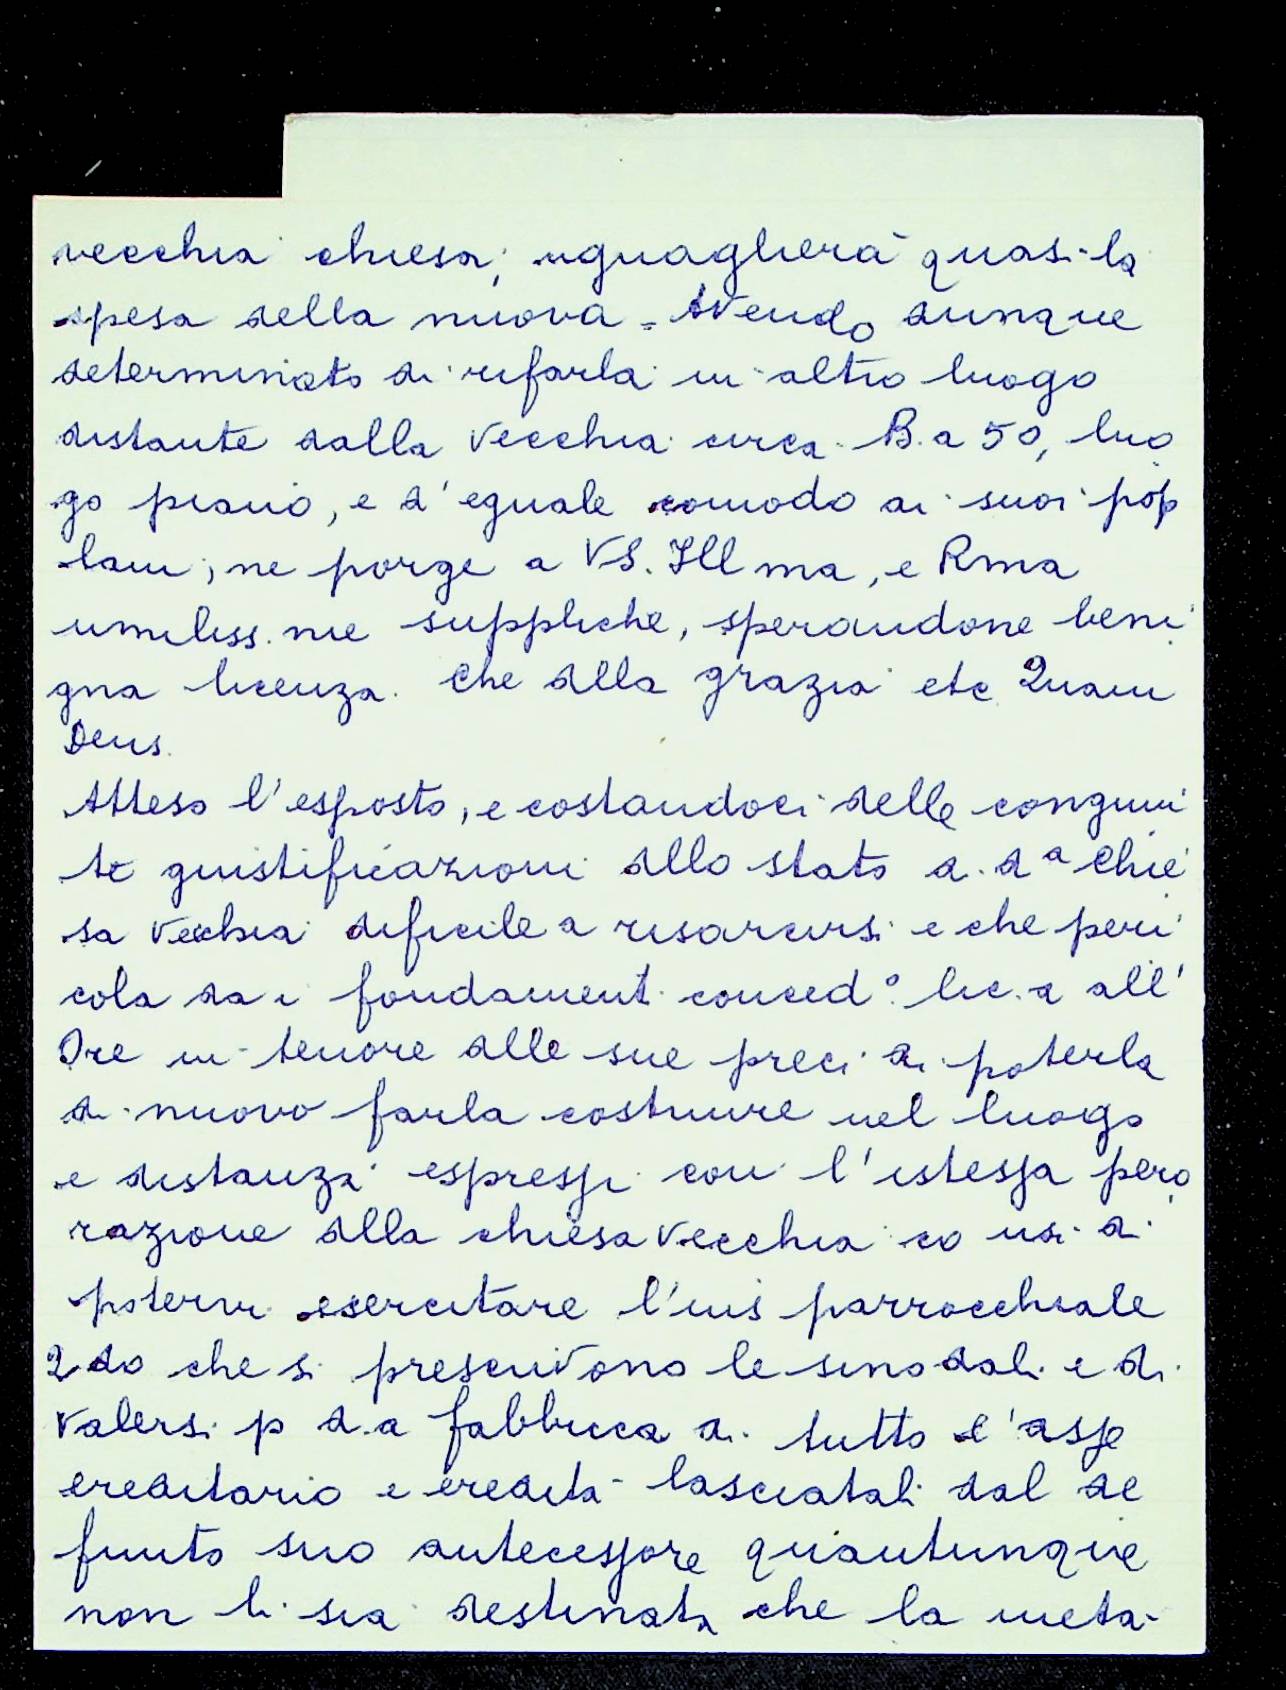 vecchia chiesa; uguaglierà quasi la
spesa della nuova = Avendo dunque
determinato di rifarla in altro luogo
distante dalla vecchia circa B.a 50, luo
go piano, e d'eguale comodo ai suoi pop
lani, ne porge a VS. Illma, e Rma
umiliss.me suppliche, sperandone beni
gna licenza. Che della grazia etc Quam
Deus.
Atteso l'esposto, e costandoci delle congiun
te giustificazioni dello stato d. d.a Chie
sa Vecchia dificile a risarcirsi e che peri
cola dai fondament. conced.o lic.a all'
Ore in tenore delle sue preci di poterla
di nuovo farla costruire nel luogo
e distanza espressi con l'istessa pero
razione della chiesa vecchia co usi di
potervi esercitare l'ius parrocchiale
2do che si prescrivono le sinodali e di
valersi p d.a fabbrica di tutto l'asse
ereditario e eredità lasciatali dal de
funto suo antecessore quantunque
non li sia destinata che la metà